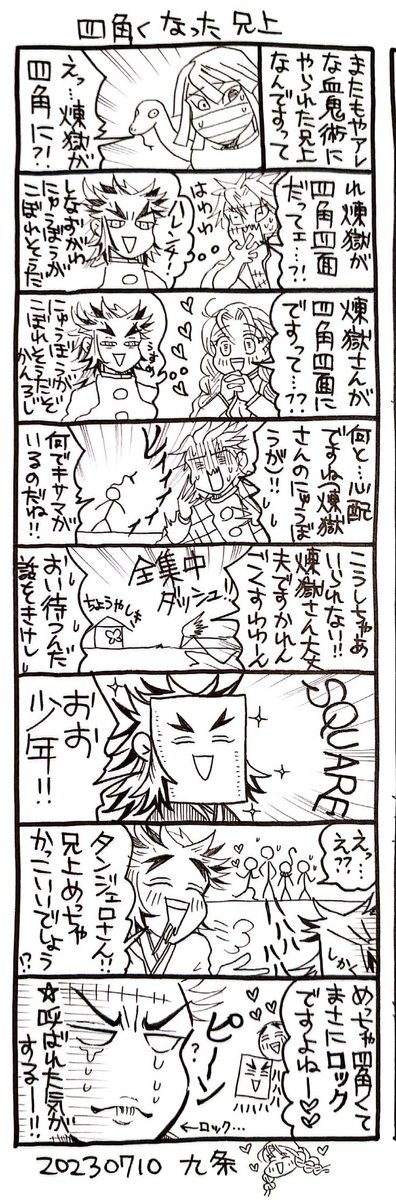 四角くなった兄上
またもやアレ
な血鬼術に
やられた兄上
なんですって
えっ…煉獄が
四角に?!
れ煉獄が
四角四面
だってェ…?!
はわわ
ハレンチ!
しなおかわ
にゅうぼうが
こぼれそうだ
煉獄さんが
四角四面に
ですって…??
にゅうぼうが
こぼれそうだぞ
かんろじ
何と…心配
ですね(煉獄
さんのにゅうぼ
うが)!!
何でキサマが
いるのだね!!
こうしちゃあ
いられない!!
煉獄さん大丈
夫ですかれん
ごくすわゎーん
全集中
ダッシュ!
ちょうやしき
おい待つんだ
話をきけし
SQUARE
おお
少年!!
えっ…
え??
しかく
タンジェロさん!!
兄上めっちゃ
かっこいいでしょう
!?
めっちゃ四角くて
まさにロック
ですよねー♡
ピーン
?
←ロック…
☆呼ばれた気が
するー!!
20230710 九条